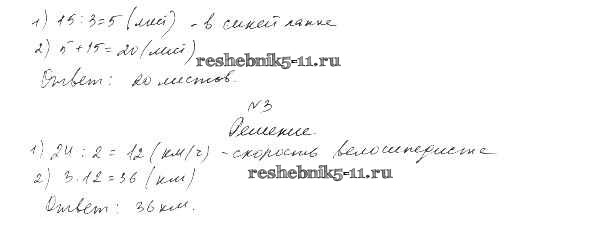 1) 15 : 3 = 5 (лис) - в синей папке
2) 5 + 15 = 20 (лис)
reshebnik5-11.ru
Ответ: 20 листов.
№3
Решение.
1) 24 : 2 = 12 (км/ч) - скорость велосипедиста
2) 3 · 12 = 36 (км)
reshebnik5-11.ru
Ответ: 36 км.